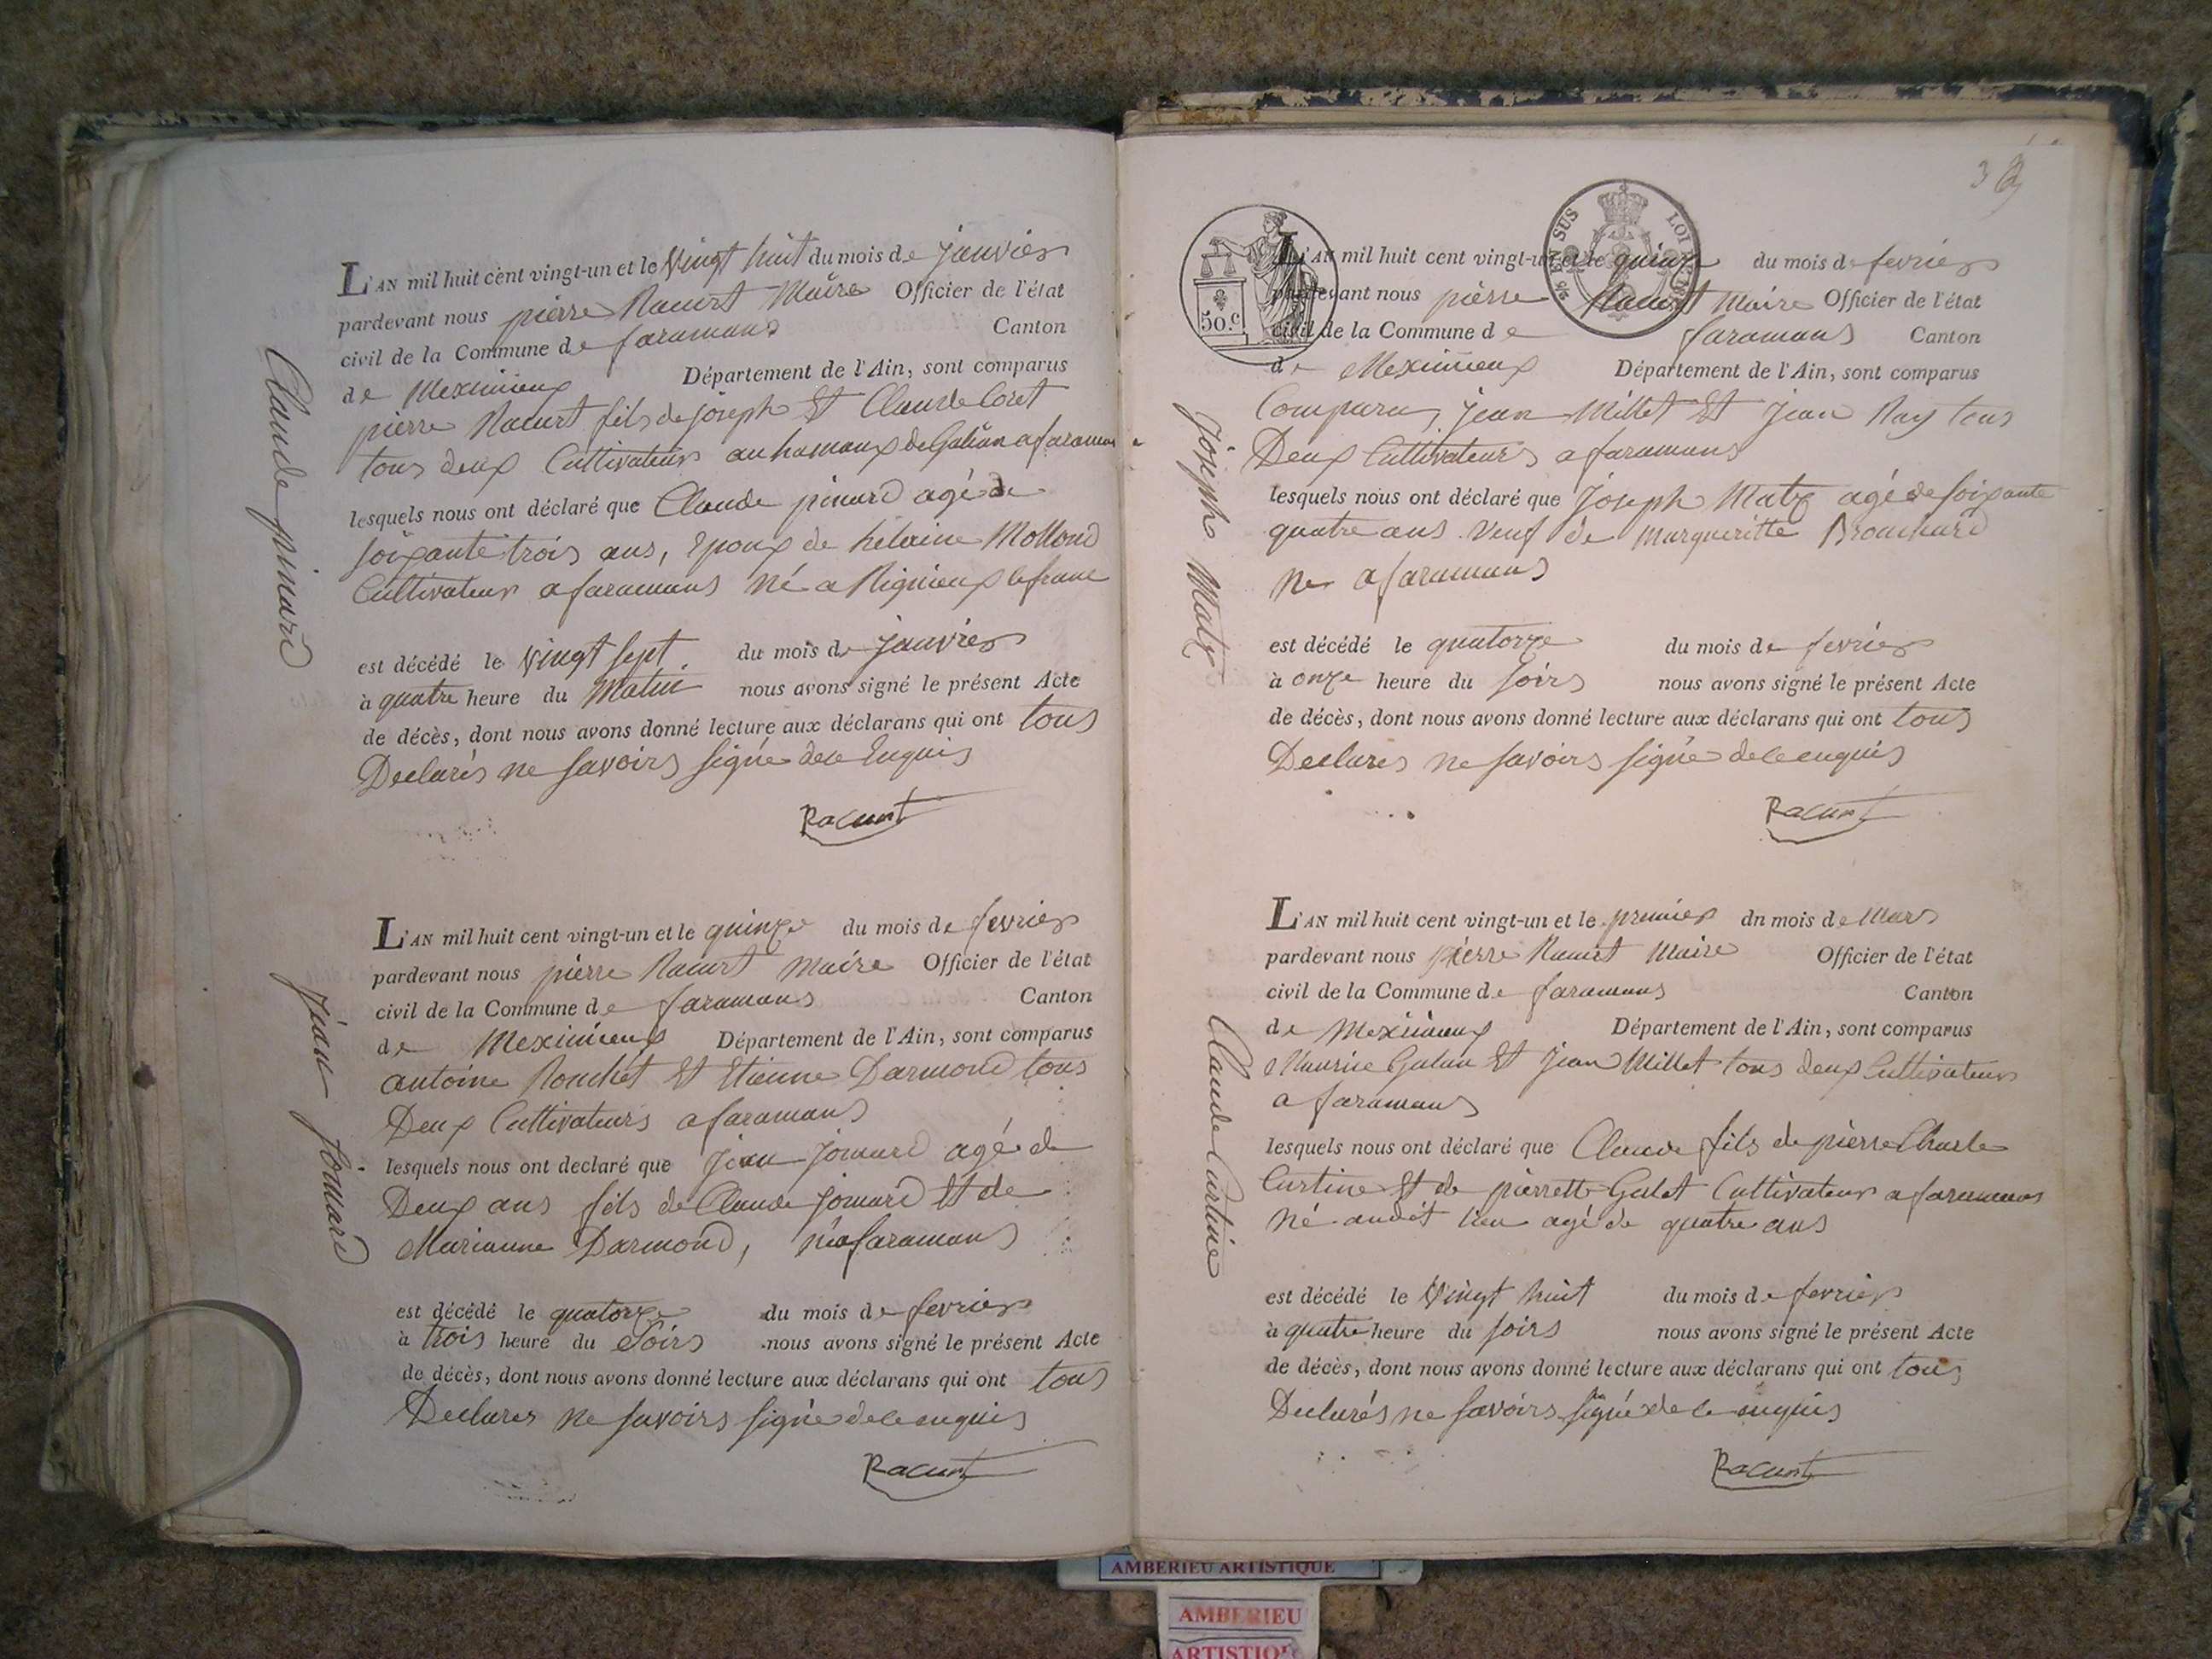 Claude pinard
L'AN mil huit cent vingt-un et le vingt huit du mois de janvier
pardevant nous pierre Racurt Maire Officier de l'état
civil de la Commune de faramans Canton
de Meximieux Département de l'Ain, sont comparus
pierre Racurt fils de joseph Et Claude Coret
tous deux Cultivateurs au hamaux de Galian a faramans
lesquels nous ont déclaré que Claude pinard agé de
soixante trois ans, Epoux de hélaine Mollond
Cultivateur a faramans Né a Rignieux lefranc
est décédé le vingt sept du mois de janvier
à quatre heure du Matin nous avons signé le présent Acte
de décès, dont nous avons donné lecture aux déclarans qui ont tous
Declarés ne savoirs signé de ce Enquis
Racurt
Jean Jomard
L'AN mil huit cent vingt-un et le quinze du mois de fevrier
pardevant nous pierre Racurt Maire Officier de l'état
civil de la Commune de faramans Canton
de Meximieux Département de l'Ain, sont comparus
antoine Ronchet Et Etienne Darmond tous
Deux Cultivateurs a faramans
lesquels nous ont declaré que jean Jomard agé de
Deux ans fils de Claude jomard Et de
Marianne Darmond, né a faramans
est décédé le quatorze du mois de fevrier
à trois heure du Soirs nous avons signé le présent Acte
de décès, dont nous avons donné lecture aux déclarans qui ont tous
Declares ne savoirs signé de ce enquis
Racurt
3
50.c
EN SUS
LOI
Joseph Matz
L'AN mil huit cent vingt-un et le quinze du mois de fevrier
pardevant nous pierre Racurt Maire Officier de l'état
civil de la Commune de faramans Canton
de Meximieux Département de l'Ain, sont comparus
Comparus jean Millet Et Jean Ray tous
Deux Cultivateurs a faramans
lesquels nous ont déclaré que Joseph Matz agé de soixante
quatre ans Veuf de Margueritte Brouchard
Ne a faramans
est décédé le quatorze du mois de fevrier
à onze heure du soirs nous avons signé le présent Acte
de décès, dont nous avons donné lecture aux déclarans qui ont tous
Declares ne savoirs signé de ce enquis
Racurt
Claude Curtine
L'AN mil huit cent vingt-un et le premier dn mois de Mars
pardevant nous pierre Racurt Maire Officier de l'état
civil de la Commune de faramans Canton
de Meximieux Département de l'Ain, sont comparus
Maurice Galan Et Jean Millet tous deux Cultivateurs
a faramans
lesquels nous ont déclaré que Claude fils de pierre Charle
Curtine Et de pierrette Galet Cultivateur a faramans
Né audit lieu agé de quatre ans
est décédé le vingt huit du mois de fevrier
à quatre heure du soirs nous avons signé le présent Acte
de décès, dont nous avons donné lecture aux déclarans qui ont tous
Declarés ne savoirs signé de ce enquis
Racurt
AMBERIEU ARTISTIQUE
AMBERIEU